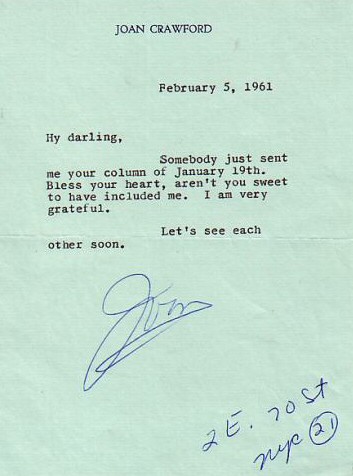 JOAN CRAWFORD
February 5, 1961
Hy darling,
Somebody just sent
me your column of January 19th.
Bless your heart, aren't you sweet
to have included me. I am very
grateful.
Let's see each
other soon.
Joan
2 E. 70 St
NYC 21